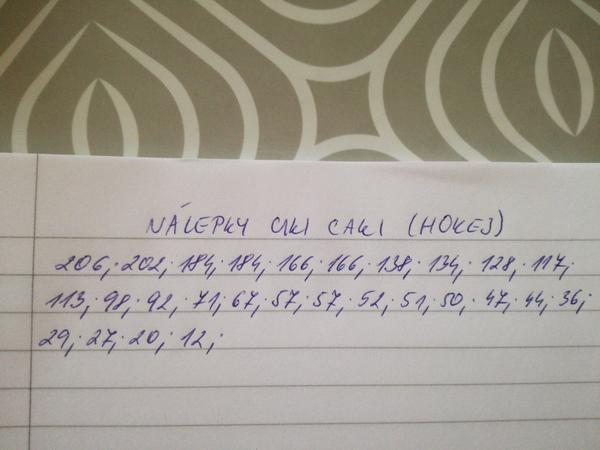 NÁLEPKY CIKI CAKI (HOKEJ)
206; 202; 184; 184; 166; 166; 138; 134; 128; 117;
113; 98; 92; 71; 67; 57; 57; 52; 51; 50; 47; 44; 36;
29; 27; 20; 12;